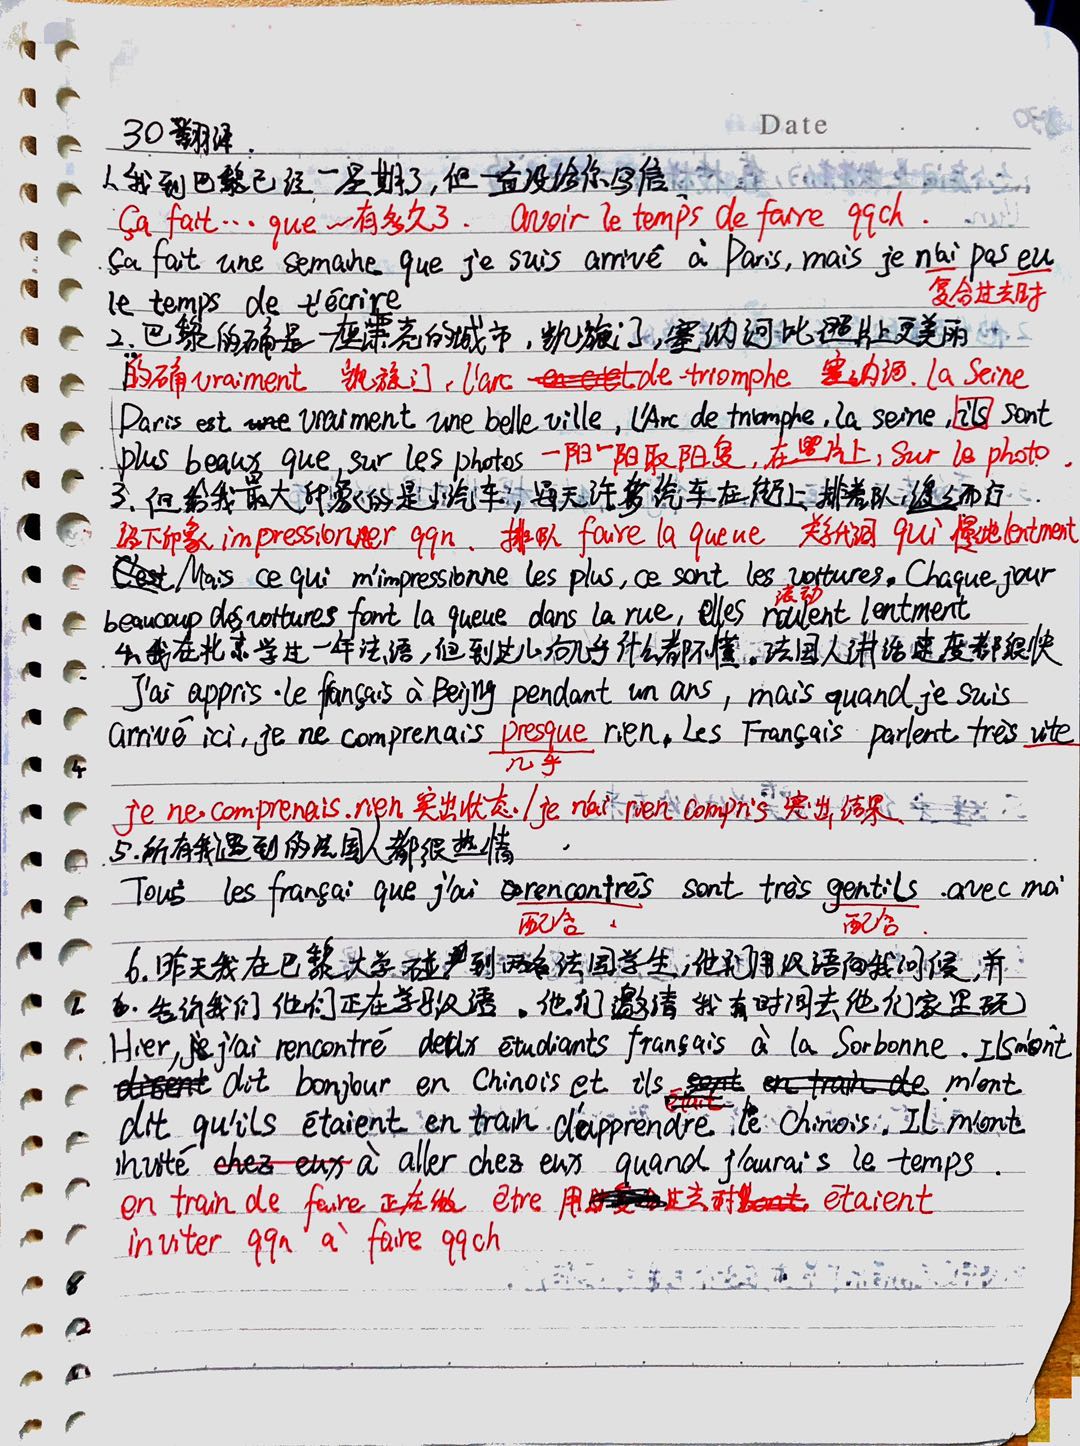 Date
30 翻译.
1.我到巴黎已经一星期了,但一直没给你写信
Ça fait… que ~有多久了. avoir le temps de faire qqch.
Ça fait une semaine que je suis arrivé à Paris, mais je n'ai pas eu
复合过去时
le temps de t'écrire
2.巴黎的确是一座漂亮的城市,凯旋门,塞纳河比照片上更美丽
的确 vraiment 凯旋门, l'arc de triomphe 塞纳河. la Seine
Paris est vraiment une belle ville, l'Arc de triomphe, la seine, ils sont
plus beaux que sur les photos 一阳一阴取阳复,在照片上, sur la photo.
3.但给我最大印象的是小汽车,每天许多汽车在街上排着队,缓缓而行.
留下印象 impressionner qqn. 排队 faire la queue 关系代词 qui 慢地 lentment
Mais ce qui m'impressionne les plus, ce sont les voitures. Chaque jour
滚动
beaucoup des voitures font la queue dans la rue, elles roulent lentment
4.我在北京学过一年法语,但到这儿后几乎什么都不懂.法国人讲话速度都很快
J'ai appris le français à Beijng pendant un ans, mais quand je suis
arrivé ici, je ne comprenais presque rien. Les Français parlent très vite
几乎
je ne comprenais rien 突出状态. / je n'ai rien compris 突出结果
5.所有我遇到的法国人都很热情
Tous les françai que j'ai rencontrés sont très gentils avec moi
配合 配合.
6.昨天我在巴黎大学碰到两名法国学生,他们用汉语向我问候,并
告诉我们他们正在学习汉语.他们邀请我有时间去他们家里玩
Hier, j'ai rencontré deux étudiants français à la Sorbonne. Ils m'ont
dit bonjour en Chinois et ils m'ont
dit qu'ils étaient en train d'apprendre le Chinois. Il m'ont
invité à aller chez eux quand j'aurais le temps.
en train de faire 正在做 être 用过去时 étaient
inviter qqn à faire qqch